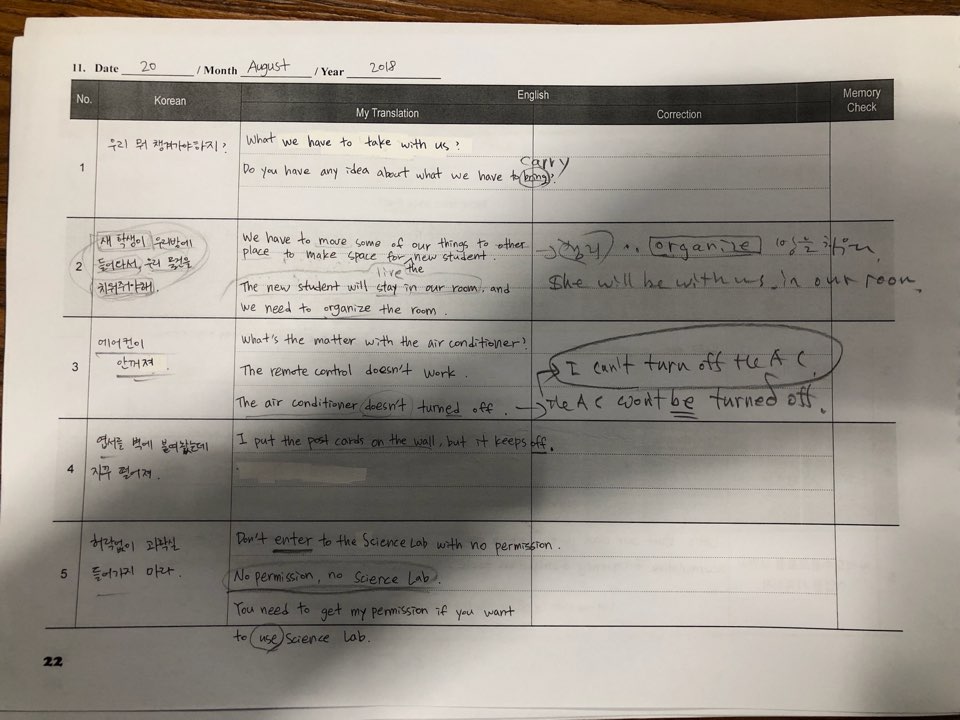 11. Date 20 / Month August / Year 2018
No. Korean English Memory Check
My Translation Correction
1 우리 뭐 챙겨가야하지? What we have to take with us?
carry
Do you have any idea about what we have to bring?
2 새 학생이 우리방에 들어와서, 우리 물건을 치워줘야해.
We have to move some of our things to other place to make space for new student.
live the
The new student will stay in our room, and we need to organize the room.
→ 정리 organize
She will be with us in our room.
3 에어컨이 안꺼져
What's the matter with the air conditioner?
The remote control doesn't work.
I can't turn off the AC.
The air conditioner doesn't turned off. → the AC won't be turned off.
4 엽서를 벽에 붙여놨는데 자꾸 떨어져.
I put the post cards on the wall, but it keeps off.
5 허락없이 과학실 들어가지 마라.
Don't enter to the Science Lab with no permission.
No permission, no Science Lab.
You need to get my permission if you want
to use Science Lab.
22